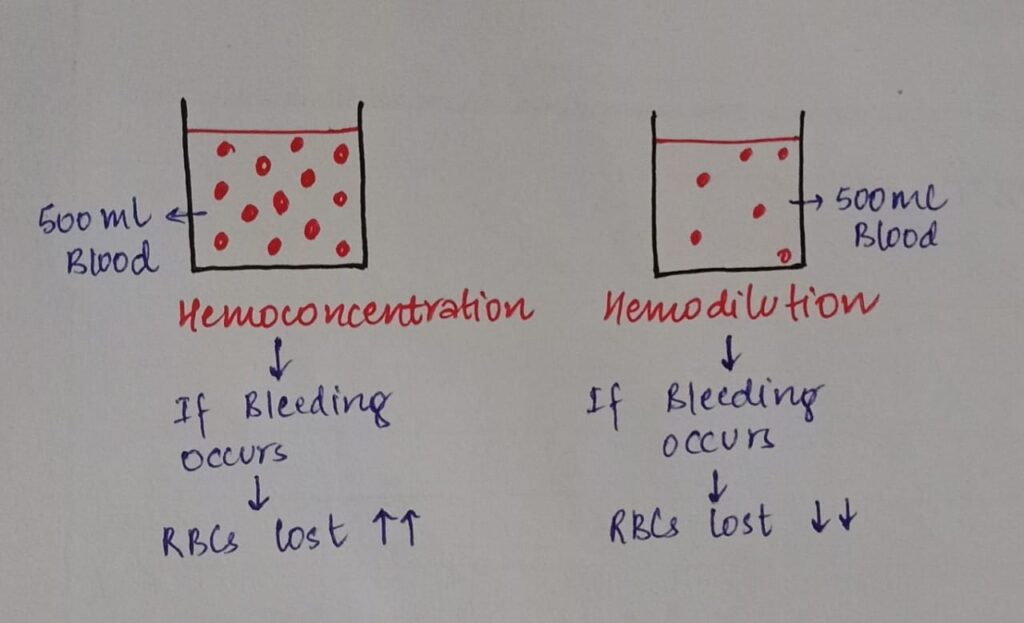 500 ml
Blood
Hemoconcentration
↓
If Bleeding
occurs
↓
RBCs lost ↑↑
500 ml
Blood
Hemodilution
↓
If Bleeding
occurs
↓
RBCs lost ↓↓